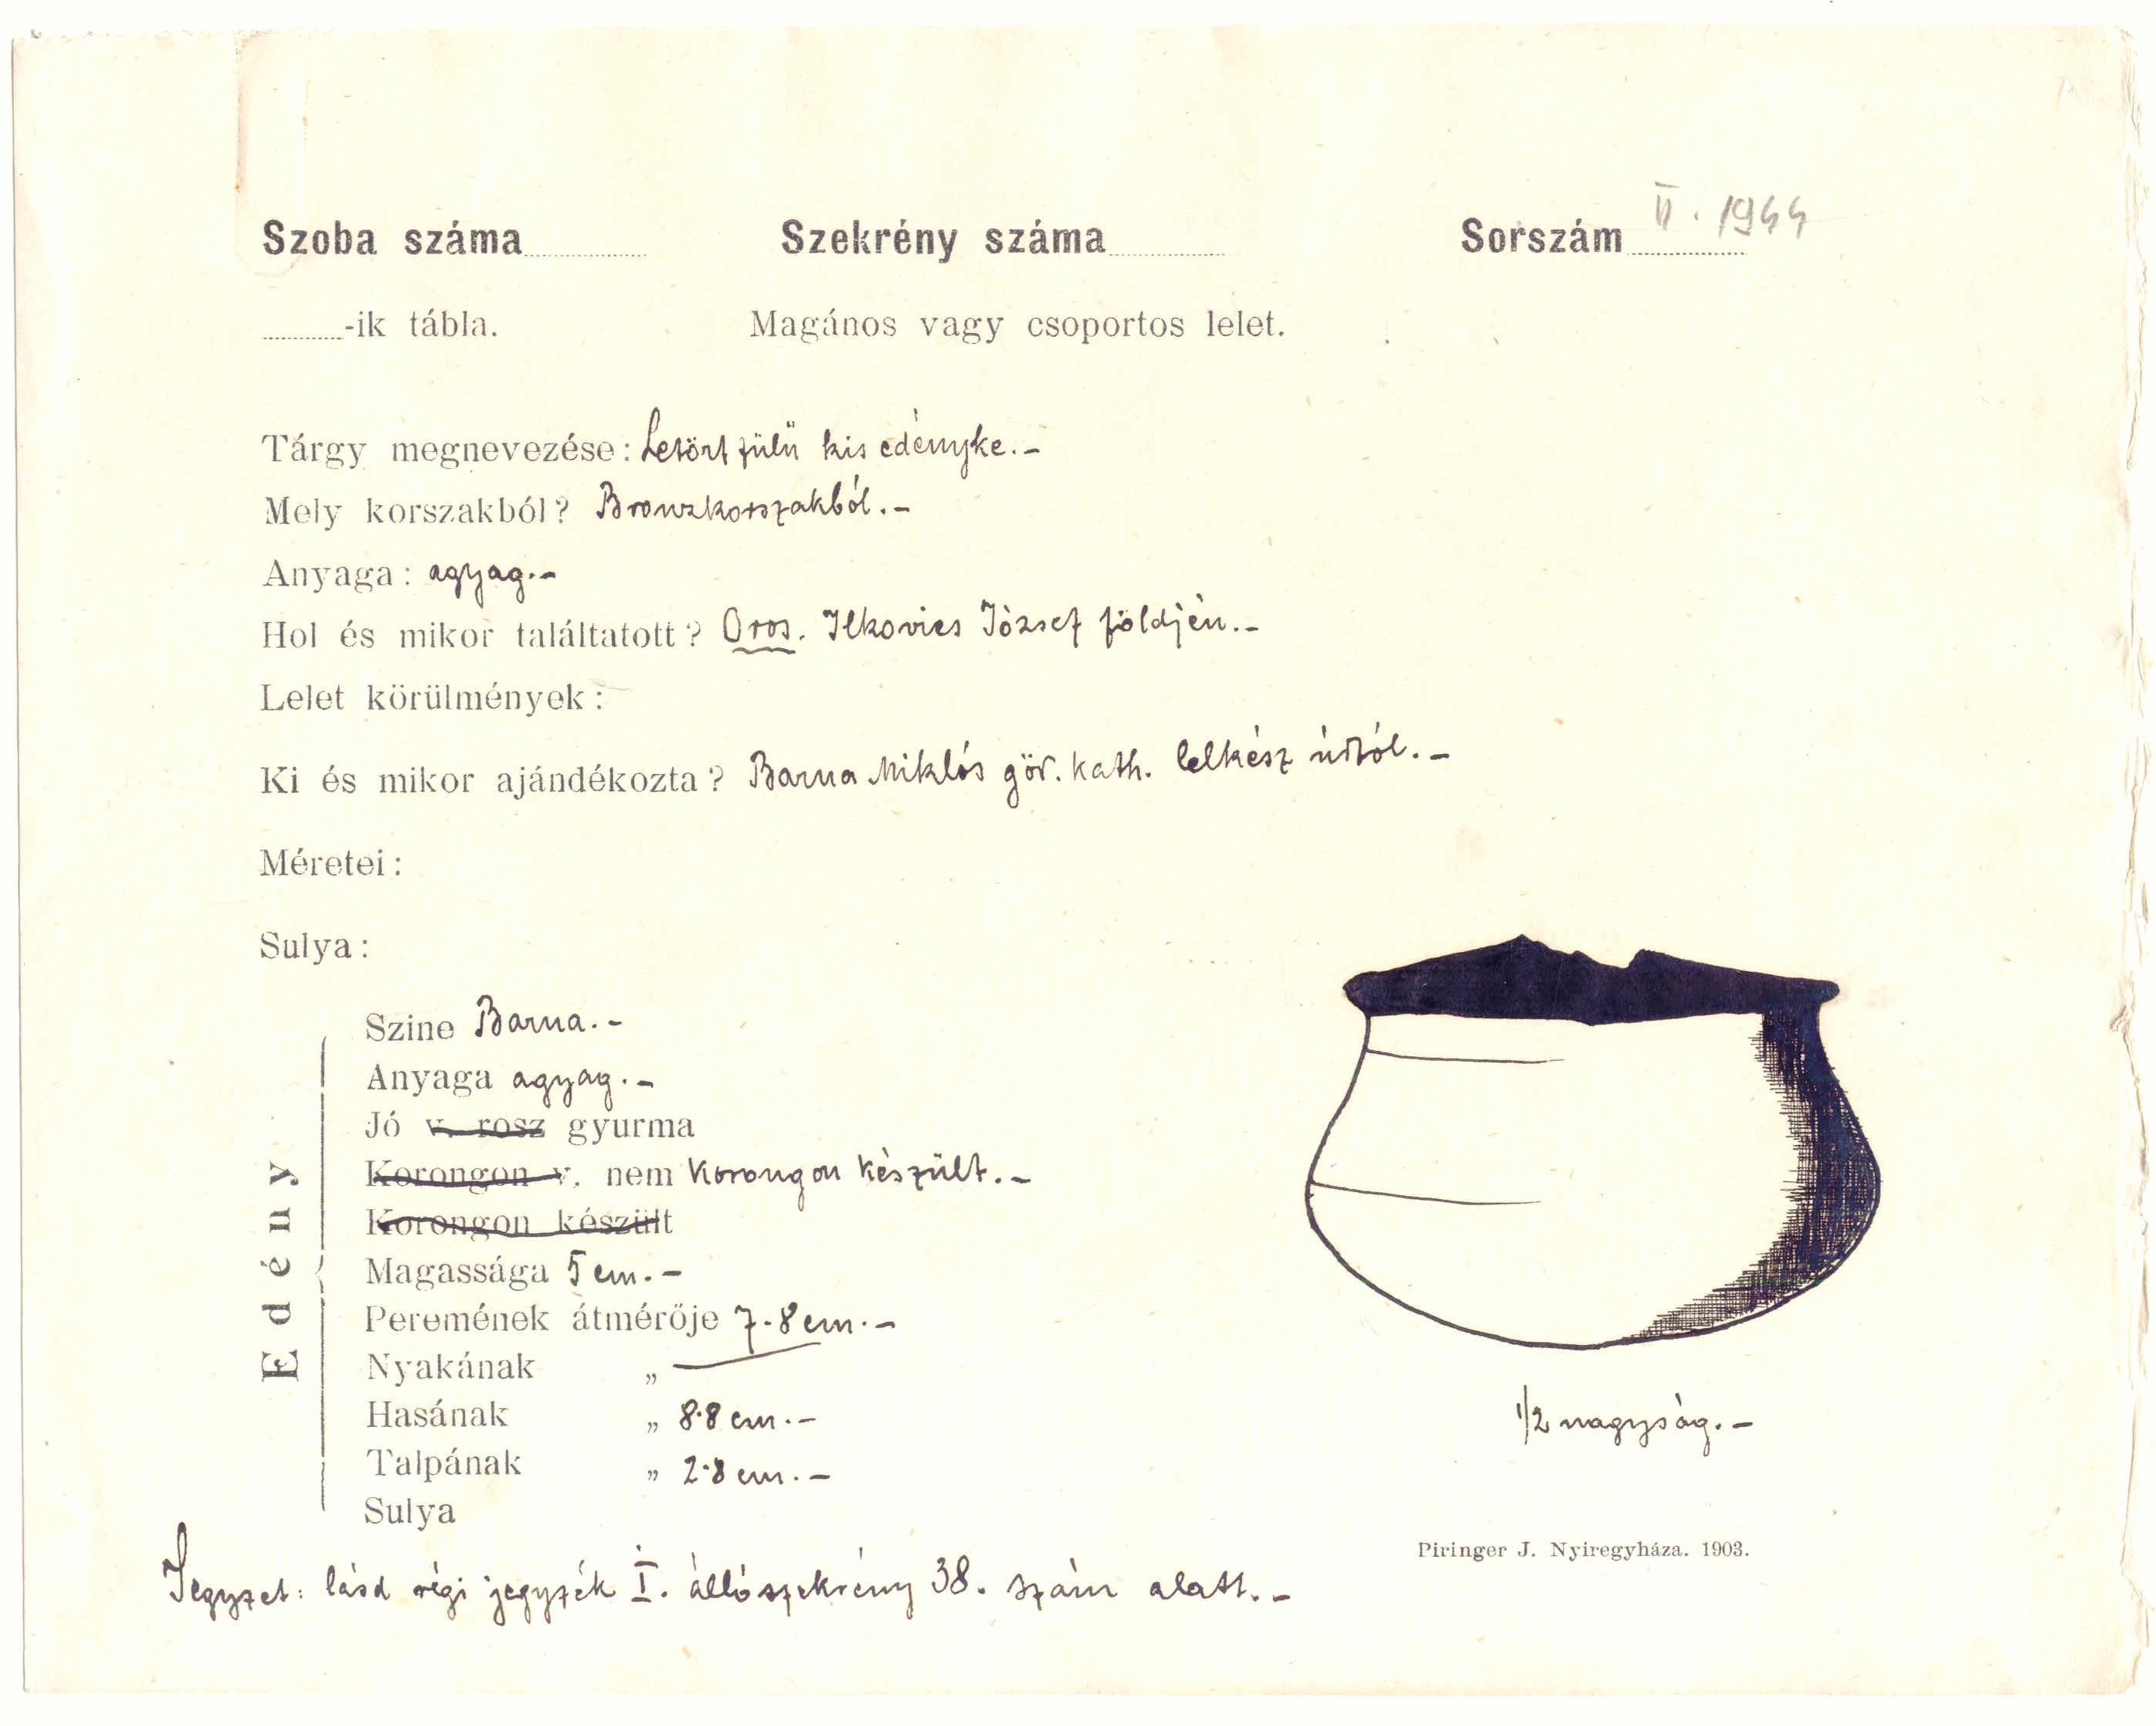 Szoba száma Szekrény száma Sorszám II. 1944
-ik tábla. Magános vagy csoportos lelet.
Tárgy megnevezése: Letört fülü kis edényke.-
Mely korszakból? Bronzkorszakból.-
Anyaga: agyag.-
Hol és mikor találtatott? Oros. Ilkovics József földjén.-
Lelet körülmények:
Ki és mikor ajándékozta? Barna Miklós gör. kath. lelkész úrtól.-
Méretei:
Sulya:
Edény
Szine Barna.-
Anyaga agyag.-
Jó v. rosz gyurma
Korongon v. nem Korongon készült.-
Korongon készült
Magassága 5 cm.-
Peremének átmérője 7.8 cm.-
Nyakának „ —
Hasának „ 8.8 cm.-
Talpának „ 2.8 cm.-
Sulya
1/2 nagyság.-
Piringer J. Nyiregyháza. 1903.
Jegyzet: lásd régi jegyzék I. állószekrény 38. szám alatt.-